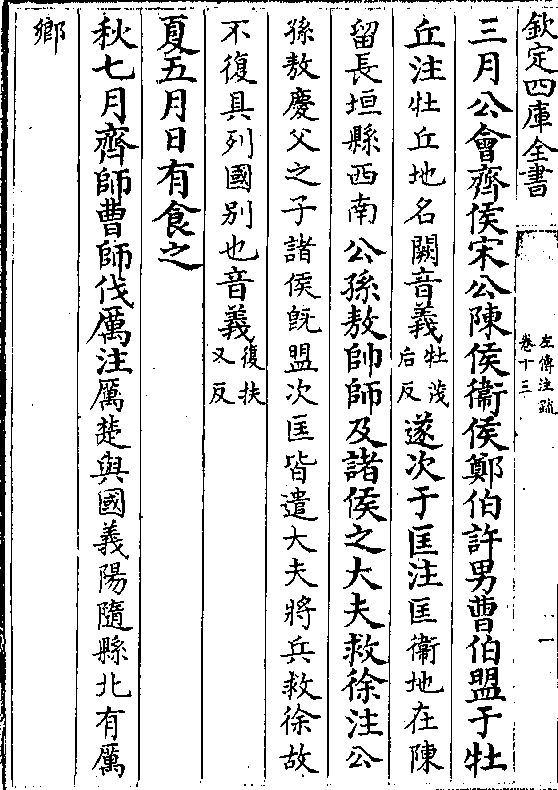 欽定四庫全書
左傳注疏
卷十三
一
三月公會齊侯宋公陳侯衞侯鄭伯許男曹伯盟于牡
丘注牡丘地名闕音義牡茂后反遂次于匡注匡衞地在陳
留長垣縣西南公孫敖帥師及諸侯之大夫救徐注公
孫敖慶父之子諸侯旣盟次匡皆遣大夫將兵救徐故
不復具列國别也音義復扶又反
夏五月日有食之
秋七月齊師曹師伐厲注厲楚與國義陽隨縣北有厲
鄉